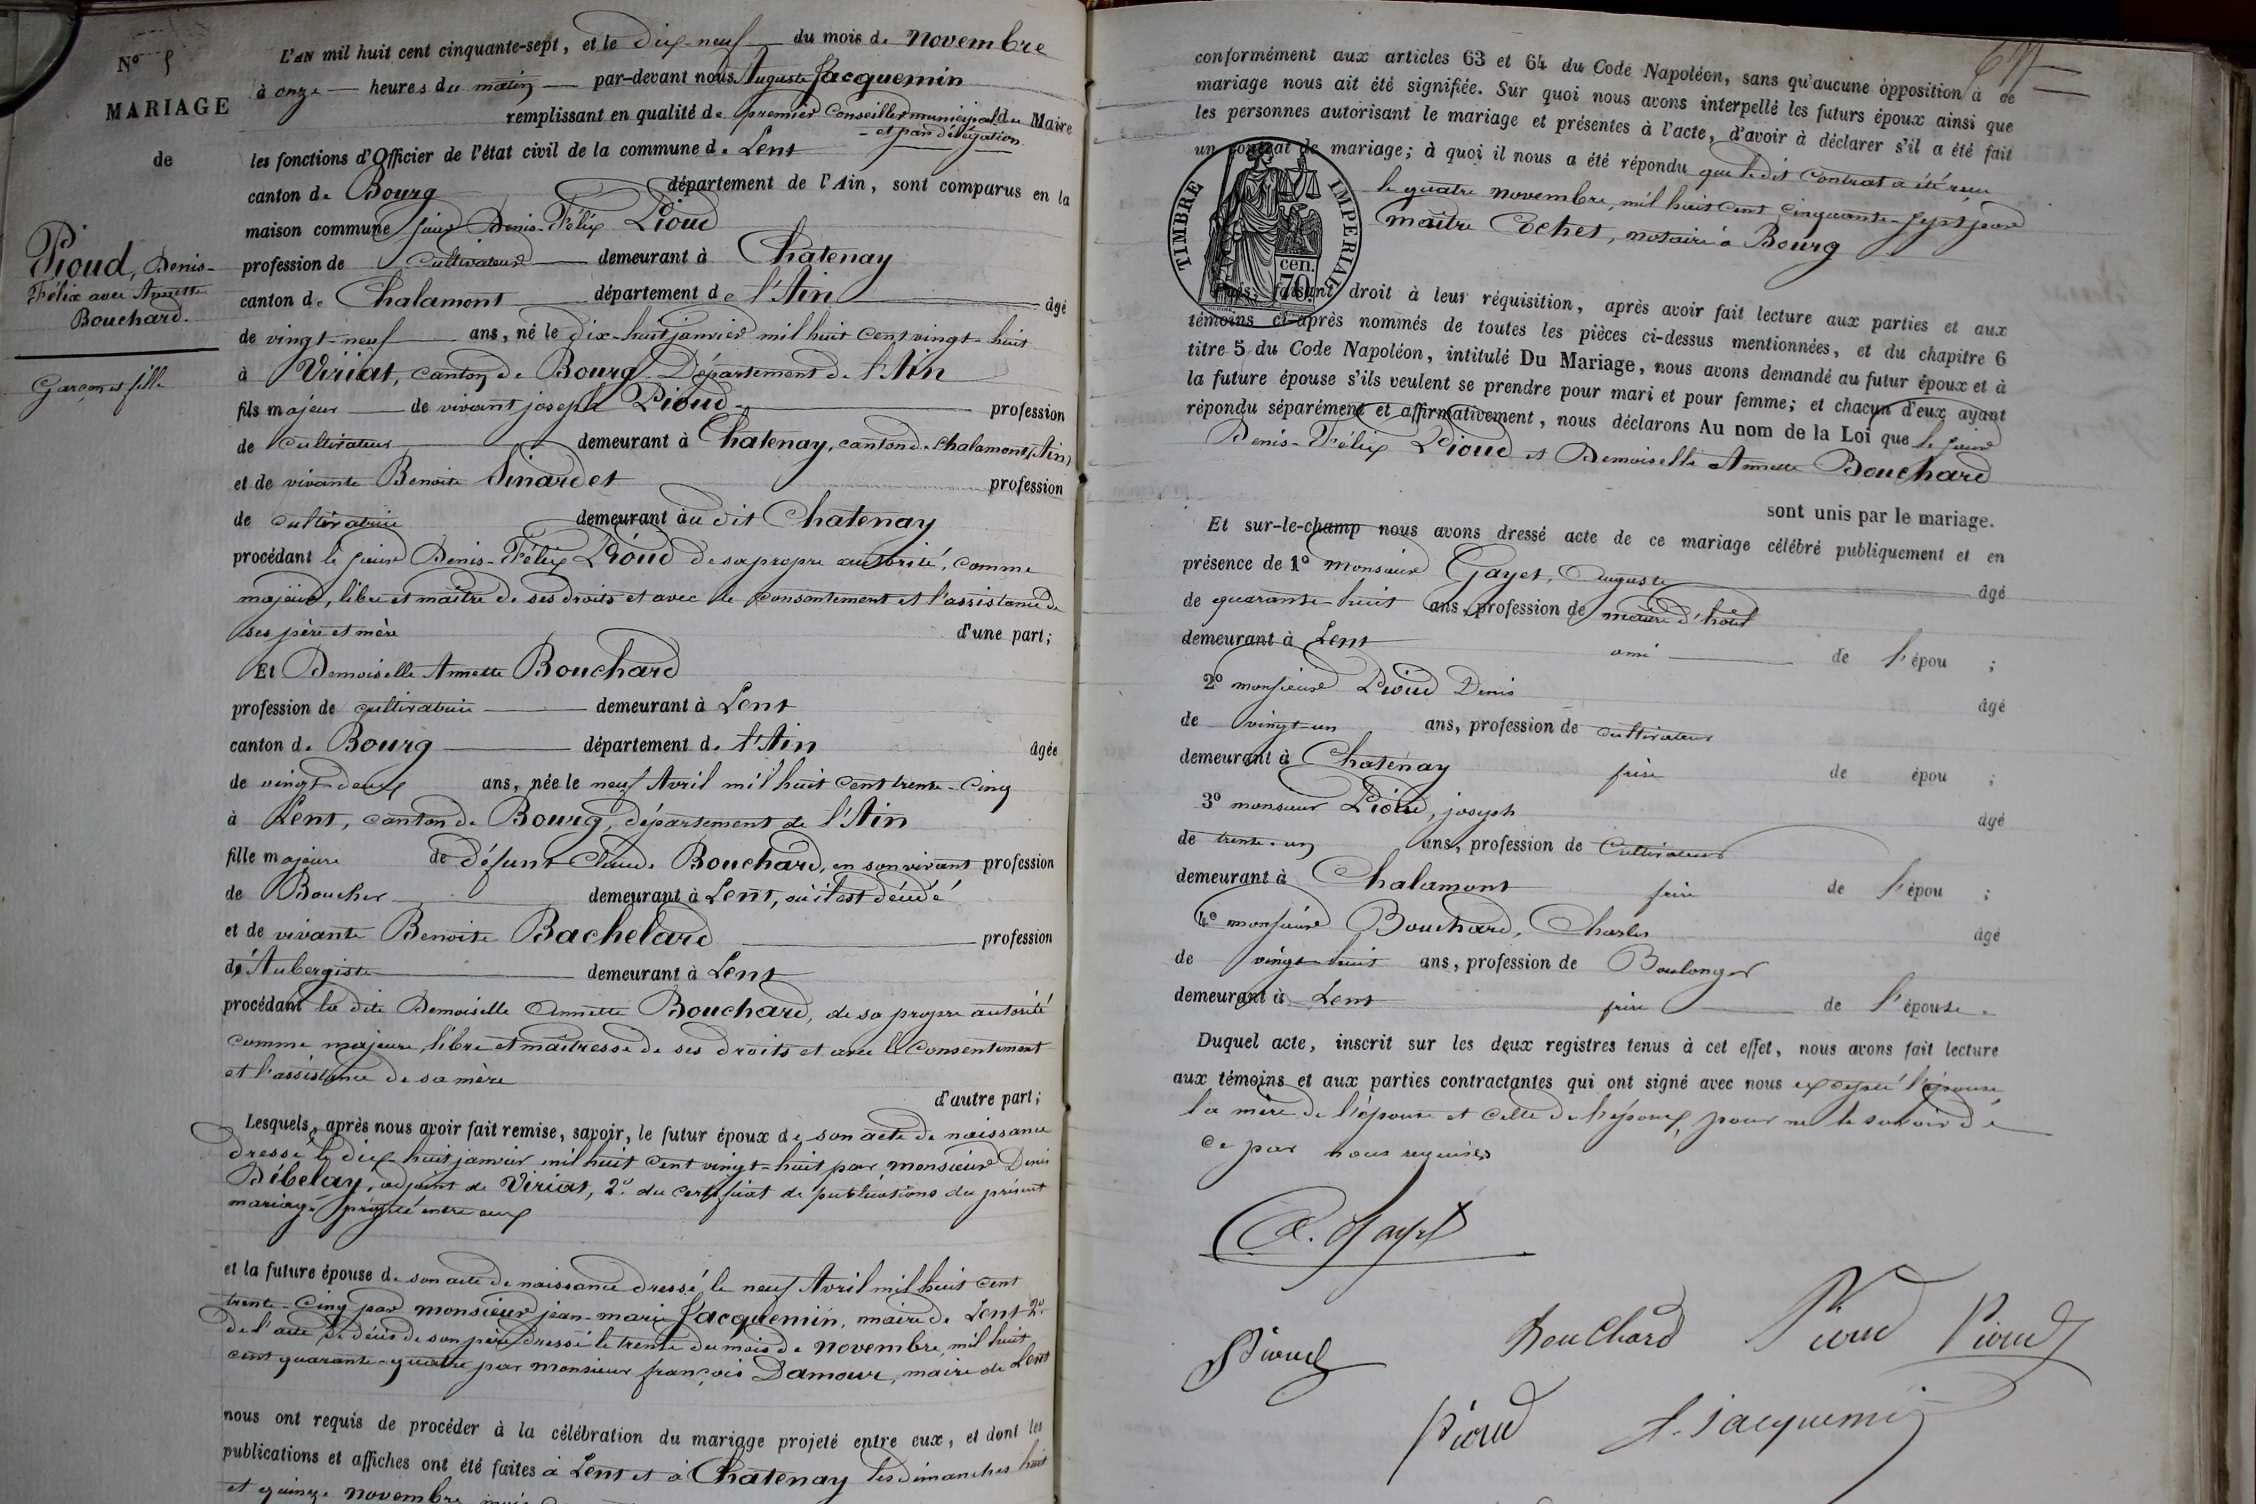 N° 5
MARIAGE
de
Pioud, Denis-
Félix avec Annette
Bouchard.
Garçon et fille
L'AN mil huit cent cinquante-sept, et le dix-neuf du mois de novembre
à onze heures du matin par-devant nous Auguste Jacquemin
remplissant en qualité de premier Conseiller municipal du Maire
et par délégation
les fonctions d'Officier de l'état civil de la commune de Lent
canton de Bourg département de l'Ain, sont comparus en la
maison commune sieur Denis-Félix Pioud
profession de cultivateur demeurant à Chatenay
canton de Chalamont département de l'Ain âgé
de vingt-neuf ans, né le dix-huit janvier mil huit cent vingt-huit
à Viriat, canton de Bourg Département de l'Ain
fils majeur de vivant joseph Pioud profession
de cultivateur demeurant à Chatenay, canton de Chalamont (Ain)
et de vivante Benoite Sinardet profession
de cultivatrice demeurant au dit Chatenay
procédant le sieur Denis-Félix Pioud de sa propre autorité, comme
majeur, libre et maître de ses droits et avec le consentement et l'assistance de
ses père et mère d'une part;
Et Demoiselle Annette Bouchard
profession de cultivatrice demeurant à Lent
canton de Bourg département de l'Ain âgée
de vingt-deux ans, née le neuf Avril mil huit cent trente-cinq
à Lent, canton de Bourg, département de l'Ain
fille majeure de défunt Claude Bouchard, en son vivant profession
de Boucher demeurant à Lent, où il est décédé
et de vivante Benoite Bachelard profession
d'Aubergiste demeurant à Lent
procédant la dite Demoiselle Annette Bouchard, de sa propre autorité
comme majeure, libre et maîtresse de ses droits et avec le consentement
et l'assistance de sa mère
d'autre part;
Lesquels, après nous avoir fait remise, savoir, le futur époux de son acte de naissance
dressé le dix-huit janvier mil huit cent vingt-huit par monsieur Denis
Débelay, adjoint de Viriat, 2° du certificat de publications du présent
mariage projeté entre eux
et la future épouse de son acte de naissance dressé le neuf Avril mil huit cent
trente-cinq par monsieur jean-marie Jacquemin, maire de Lent 2°
de l'acte de décès de son père dressé le trente du mois de novembre, mil huit
cent quarante-quatre par monsieur françois Damour, maire de Lent
nous ont requis de procéder à la célébration du mariage projeté entre eux, et dont les
publications et affiches ont été faites à Lent et à Chatenay les dimanches huit
et quinze novembre
conformément aux articles 63 et 64 du Code Napoléon, sans qu'aucune opposition à ce
mariage nous ait été signifiée. Sur quoi nous avons interpellé les futurs époux ainsi que
les personnes autorisant le mariage et présentes à l'acte, d'avoir à déclarer s'il a été fait
un contrat de mariage; à quoi il nous a été répondu que le dit contrat a été reçu
le quatre novembre, mil huit cent cinquante-sept par
maître Cochet, notaire à Bourg
TIMBRE IMPERIAL
70 cen.
Puis, faisant droit à leur réquisition, après avoir fait lecture aux parties et aux
témoins ci-après nommés de toutes les pièces ci-dessus mentionnées, et du chapitre 6
titre 5 du Code Napoléon, intitulé Du Mariage, nous avons demandé au futur époux et à
la future épouse s'ils veulent se prendre pour mari et pour femme; et chacun d'eux ayant
répondu séparément et affirmativement, nous déclarons Au nom de la Loi que le sieur
Denis-Félix Pioud et Demoiselle Annette Bouchard
sont unis par le mariage.
Et sur-le-champ nous avons dressé acte de ce mariage célébré publiquement et en
présence de 1° monsieur Gayet, Auguste âgé
de quarante-huit ans, profession de maître d'hôtel
demeurant à Lent ami de l'épou ;
2° monsieur Pioud Denis âgé
de vingt-un ans, profession de cultivateur
demeurant à Chatenay frère de épou ;
3° monsieur Pioud, joseph âgé
de trente-un ans, profession de Cultivateur
demeurant à Chalamont frère de l'épou ;
4° monsieur Bouchard, Charles âgé
de vingt-huit ans, profession de Boulanger
demeurant à Lent frère de l'épouse.
Duquel acte, inscrit sur les deux registres tenus à cet effet, nous avons fait lecture
aux témoins et aux parties contractantes qui ont signé avec nous excepté l'épouse,
la mère de l'épouse et celle de l'époux, pour ne le savoir de
ce par nous requises
A. Gayet
Pioud Bouchard Pioud Pioud
Pioud A. Jacquemin